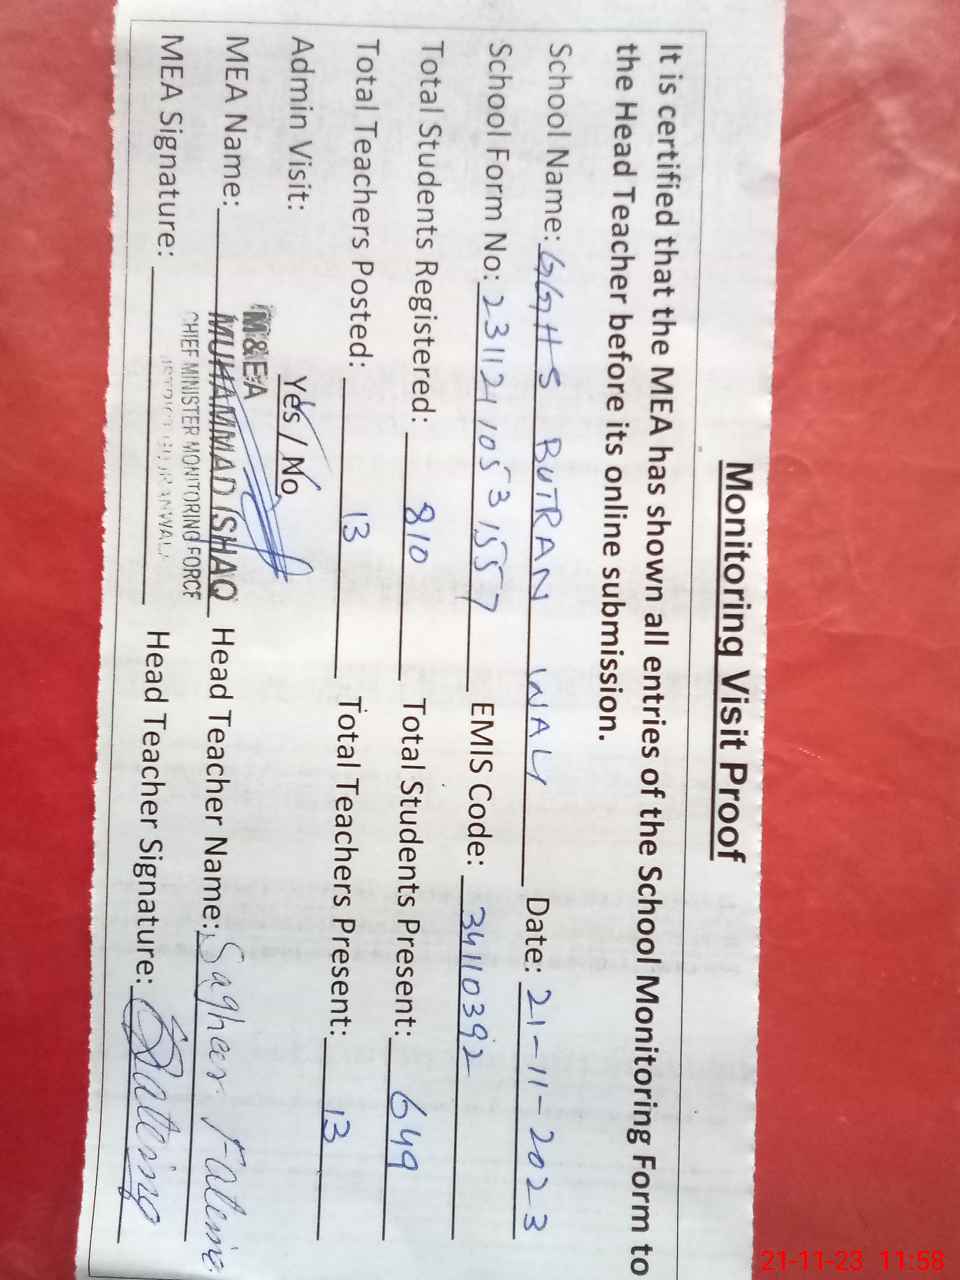 Monitoring Visit Proof
It is certified that the MEA has shown all entries of the School Monitoring Form to
the Head Teacher before its online submission.
School Name: GGHS BUTRAN WALI Date: 21-11-2023
School Form No: EMIS Code: 34110392
Total Students Registered: 810 Total Students Present: 649
Total Teachers Posted: 13 Total Teachers Present: 13
Admin Visit: Yes / No
M&EA
MEA Name: MUHAMMAD ISHAQ Head Teacher Name: Sagheer Fatima
CHIEF MINISTER MONITORING FORCE
MEA Signature: Head Teacher Signature:
21-11-23 11:58